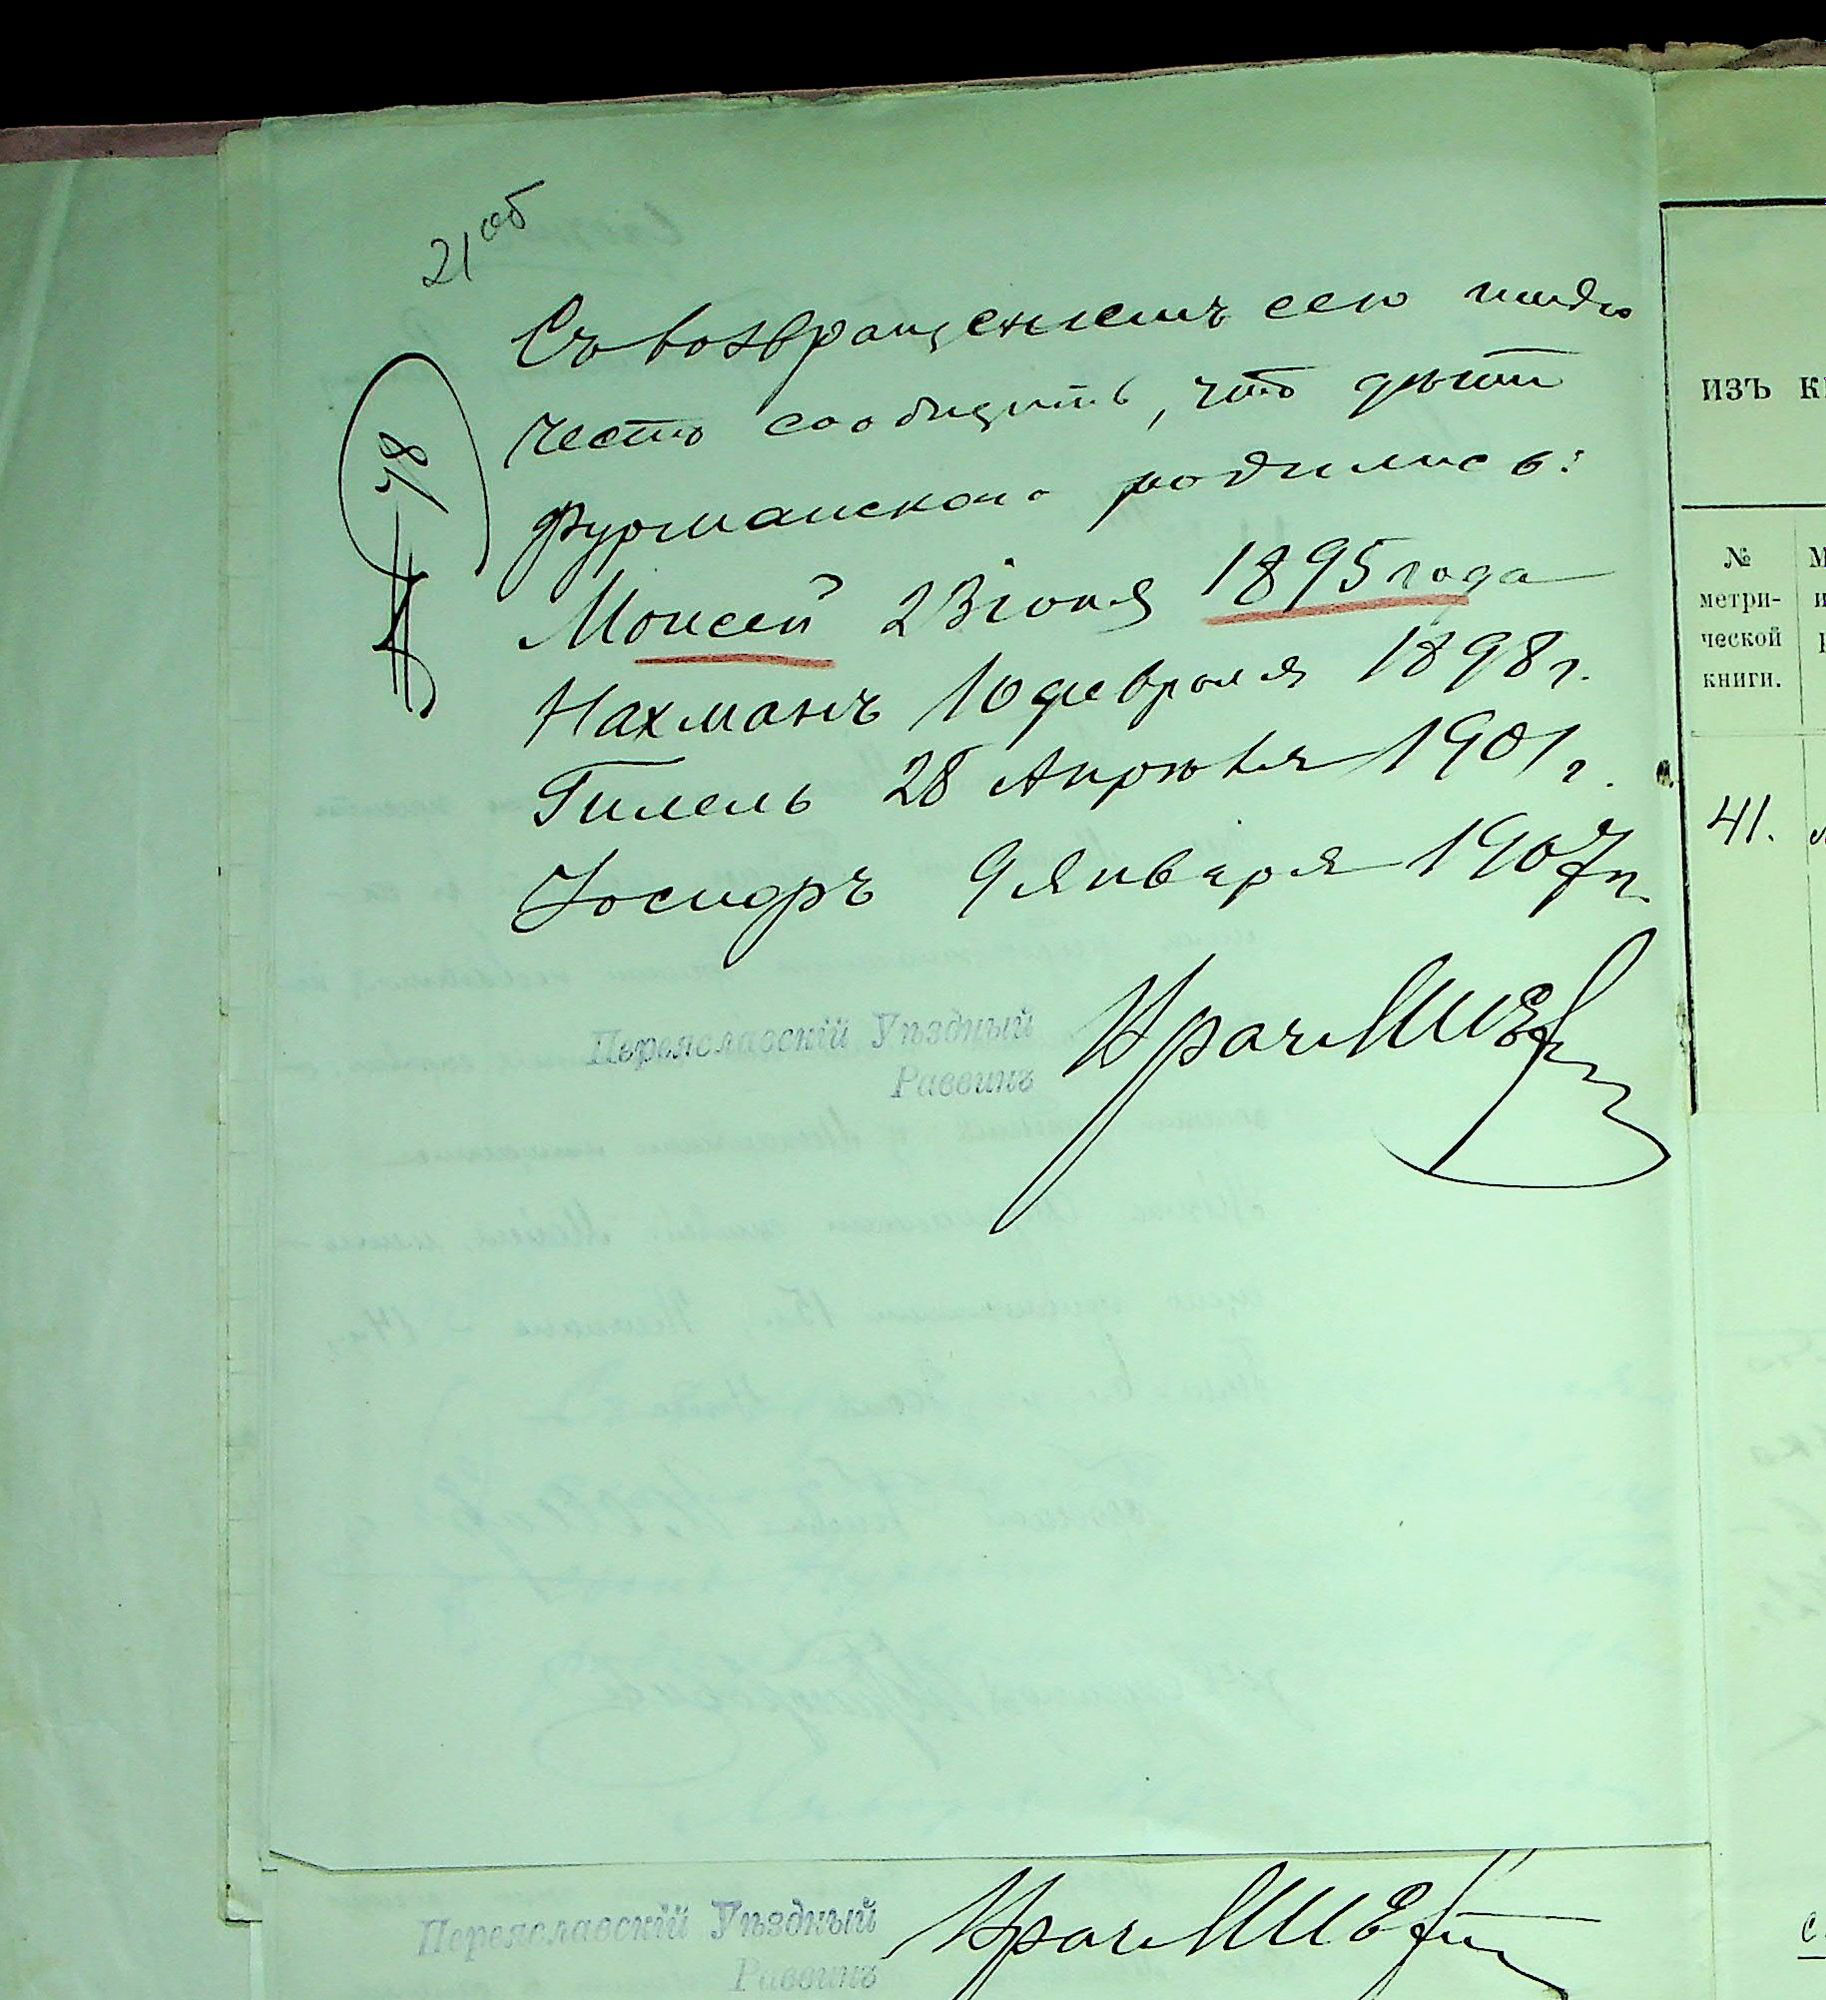 21 об
Съ возвращеніемъ сего имѣю
честь сообщить, что дѣти
Фурманскаго родились:
Моисей 23 іюня 1895 года
Нахманъ 10 февраля 1898 г.
Гилель 28 Апрѣля 1901 г.
Іосифъ 9 Января 1907 г.
№ 78
Переяславскій Уѣздный
Раввинъ
изъ к
№
метри-
ческой
книги.
41.
Переяславскій Уѣздный
Раввинъ